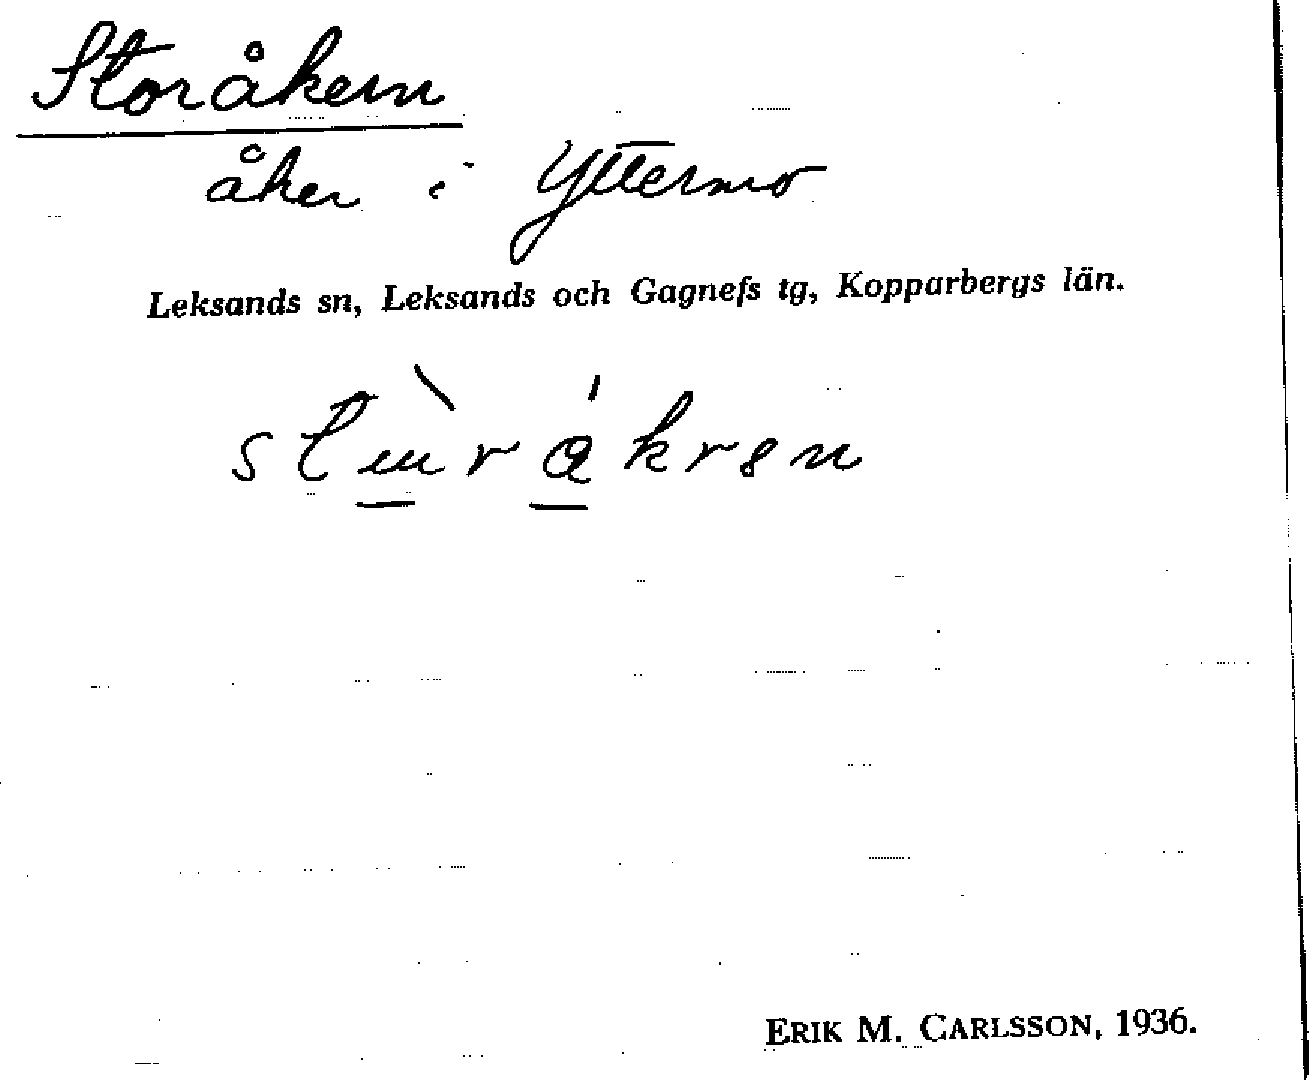 Storåkern
åker i Yttermo
Leksands sn, Leksands och Gagnefs tg, Kopparbergs län.
ERIK M. CARLSSON, 1936.